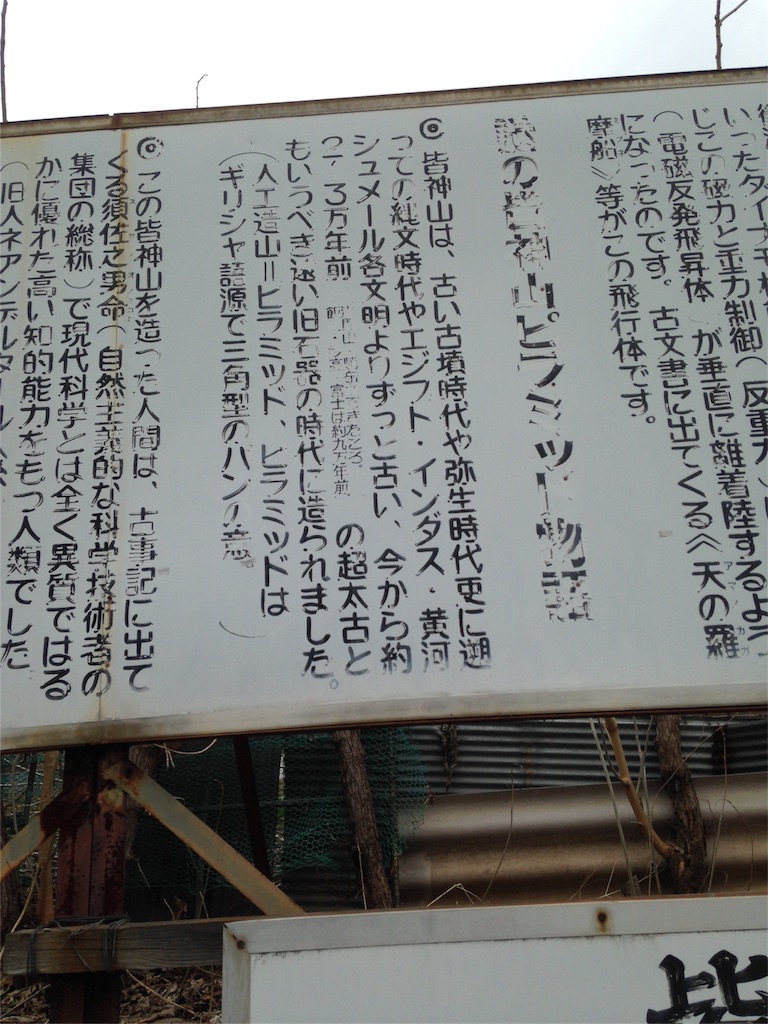 いったタイナモ
じこの磁力と重力制御(反重力)
(電磁反発飛昇体 が垂直に離着陸するよう
になったのです。古文書に出てくるヘ天の羅
摩船〉等がこの飛行体です。
謎の皆神山ピラミッド物語
◎皆神山は、古い古墳時代や弥生時代更に遡
っての縄文時代やエジフト・インダス・黄河
シュメール各文明よりずっと古い、今から約
2~3万年前 富士は約九万年前 の超太古と
もいうべき遠い旧石器の時代に造られました。
(人工造山=ヒラミッド、ヒラミッドは
ギリシャ語源で三角型のパンの意 )
◎この皆神山を造った人間は、古事記に出て
くる須佐之男命(自然主義的な科学技術者の
集団の総称)で現代科学とは全く異質ではる
かに優れた高い知的能力をもつ人類でした
(旧人ネアンデルタール人系
皆